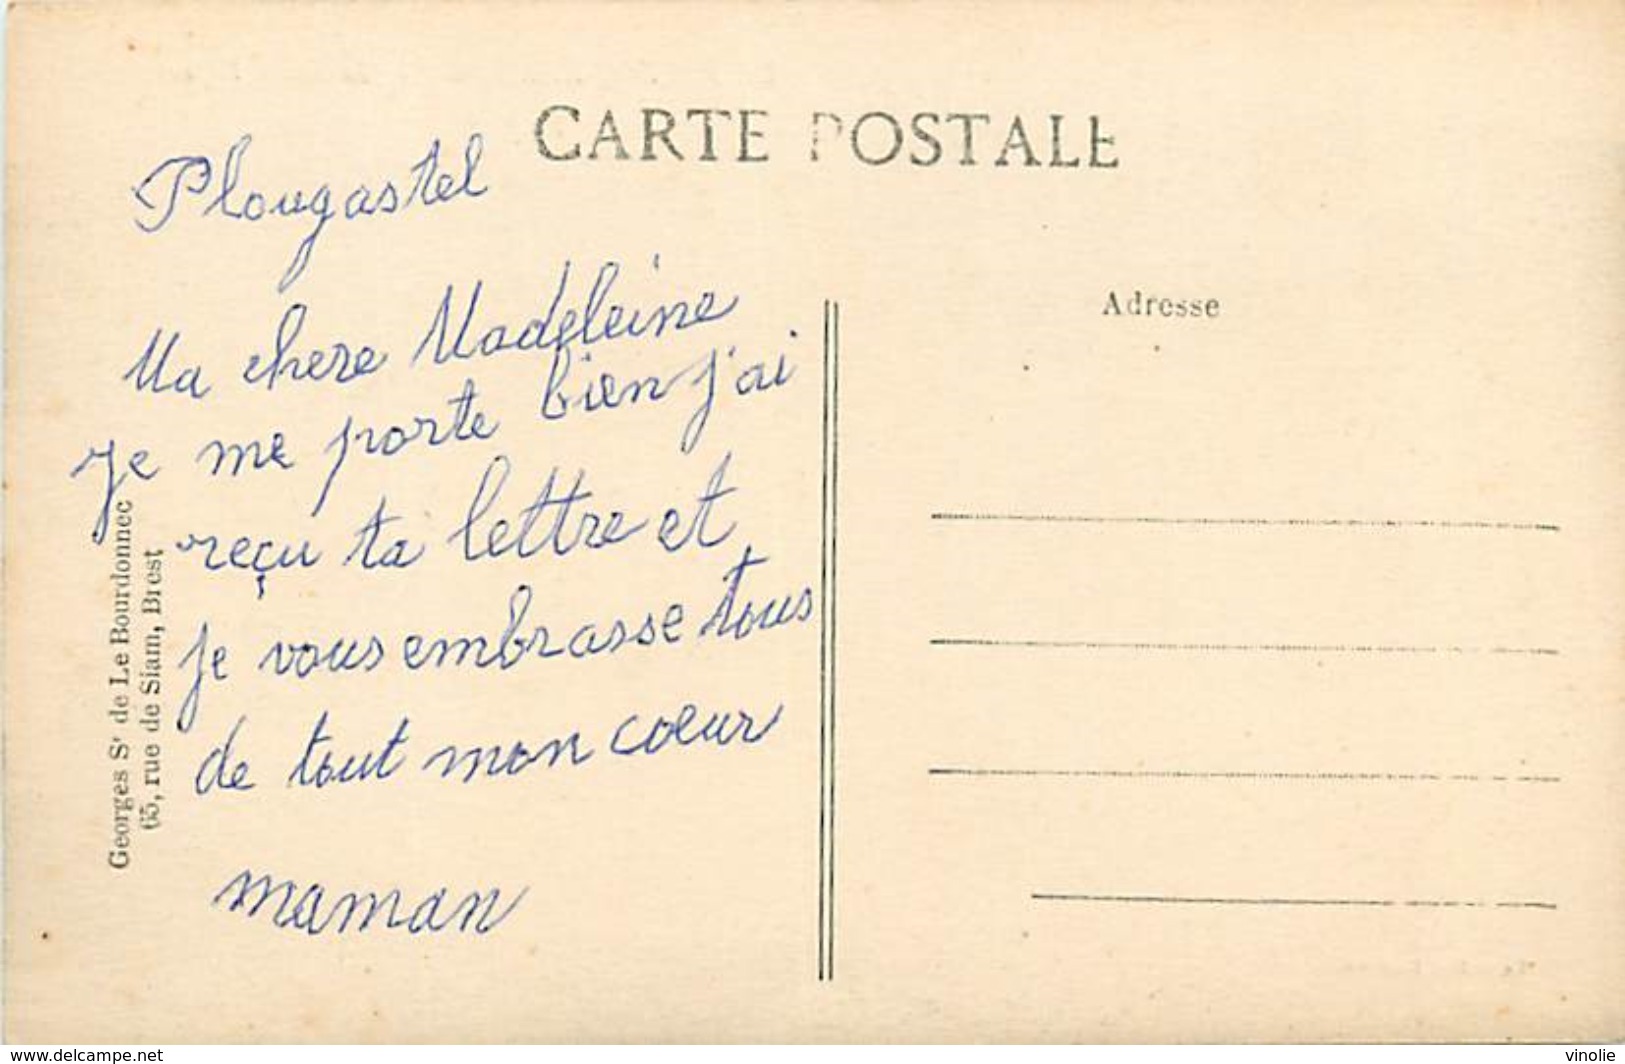 CARTE POSTALE
Plougastel
Ma chere Madeleine
je me porte bien j'ai
reçu ta lettre et
je vous embrasse tous
de tout mon coeur
maman
Georges Sr de Le Bourdonnec
65, rue de Siam, Brest
Adresse
www.delcampe.net
vinolie